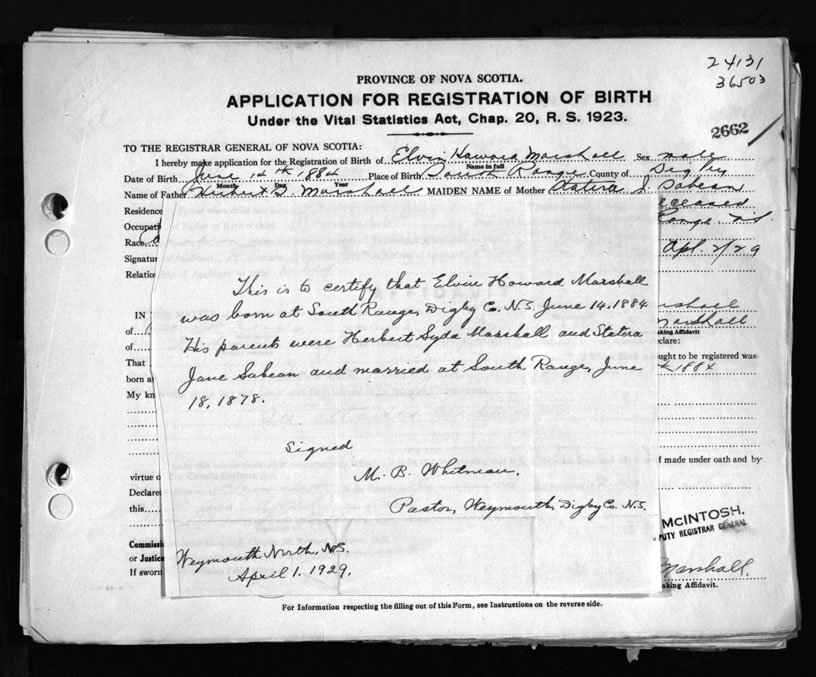 24131
36503
PROVINCE OF NOVA SCOTIA.
APPLICATION FOR REGISTRATION OF BIRTH
Under the Vital Statistics Act, Chap. 20, R. S. 1923.
2662
TO THE REGISTRAR GENERAL OF NOVA SCOTIA:
I hereby make application for the Registration of Birth of Elvin Howard Marshall Sex male
Name in full
Date of Birth June 14th 1884 Place of Birth South Range County of Digby
Month Day Year
Name of Father Herbert S. Marshall MAIDEN NAME of Mother Statera J. Sabean
Residence
Occupati
Race
Signatur Apl. 2/29
Relatio
This is to certify that Elvin Howard Marshall
was born at South Range, Digby Co. N.S. June 14. 1884
His parents were Herbert Syda Marshall and Statera
Jane Sabean and married at South Range, June
18, 1878.
Signed
M. B. Whitman,
Pastor, Weymouth, Digby Co. N.S.
Weymouth North, N.S.
April 1. 1929.
IN
of
of
That
born a
My kn
virtue o
Declare
this
Commissi
or Justice
If sworn
rshall
Marshall
aking Affidavit
clare:
ught to be registered was
1884
f made under oath and by
McINTOSH,
PUTY REGISTRAR GENERAL
Marshall.
aking Affidavit.
For Information respecting the filling out of this Form, see Instructions on the reverse side.